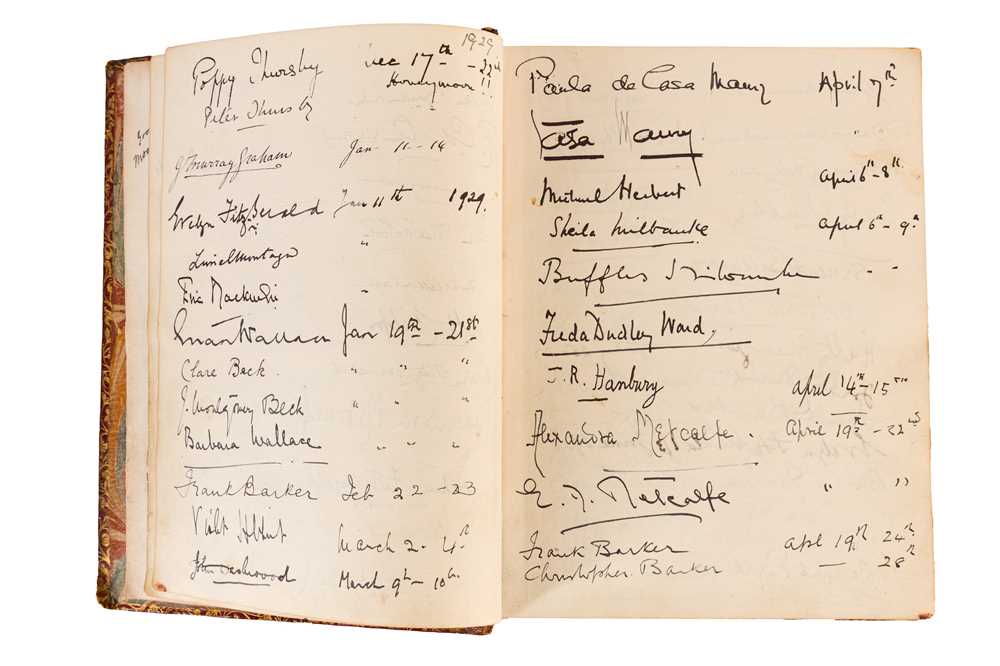 1929
Poppy Thursby Dec 17th - 22nd
Honeymoon!!
Peter Thursby
J Murray Graham Jan 11 - 14
Evelyn FitzGerald Jan 11th 1929.
Lionel Montagu "
Eric Mackenzie "
Euan Wallace Jan 19th - 21st
Clare Beck. " " "
J. Montgomery Beck " " "
Barbara Wallace " " "
Frank Barker Feb 22 - 23
Violet March 2 - 4th
John Dashwood March 9th - 10th
Paula de Casa Maury April 7th
Casa Maury "
Michael Herbert April 6th - 8th
Sheila Milbanke April 6th - 9th
Buffles Milbanke " "
Freda Dudley Ward,
J.R. Hanbury April 14th - 15th
Alexandra Metcalfe. April 19th - 22nd
E. D. Metcalfe " "
Frank Barker Apl 19th 24th
Christopher Barker — 28th